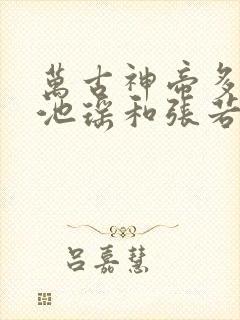 萬古神帝多
池瑤和張若
呂嘉慧